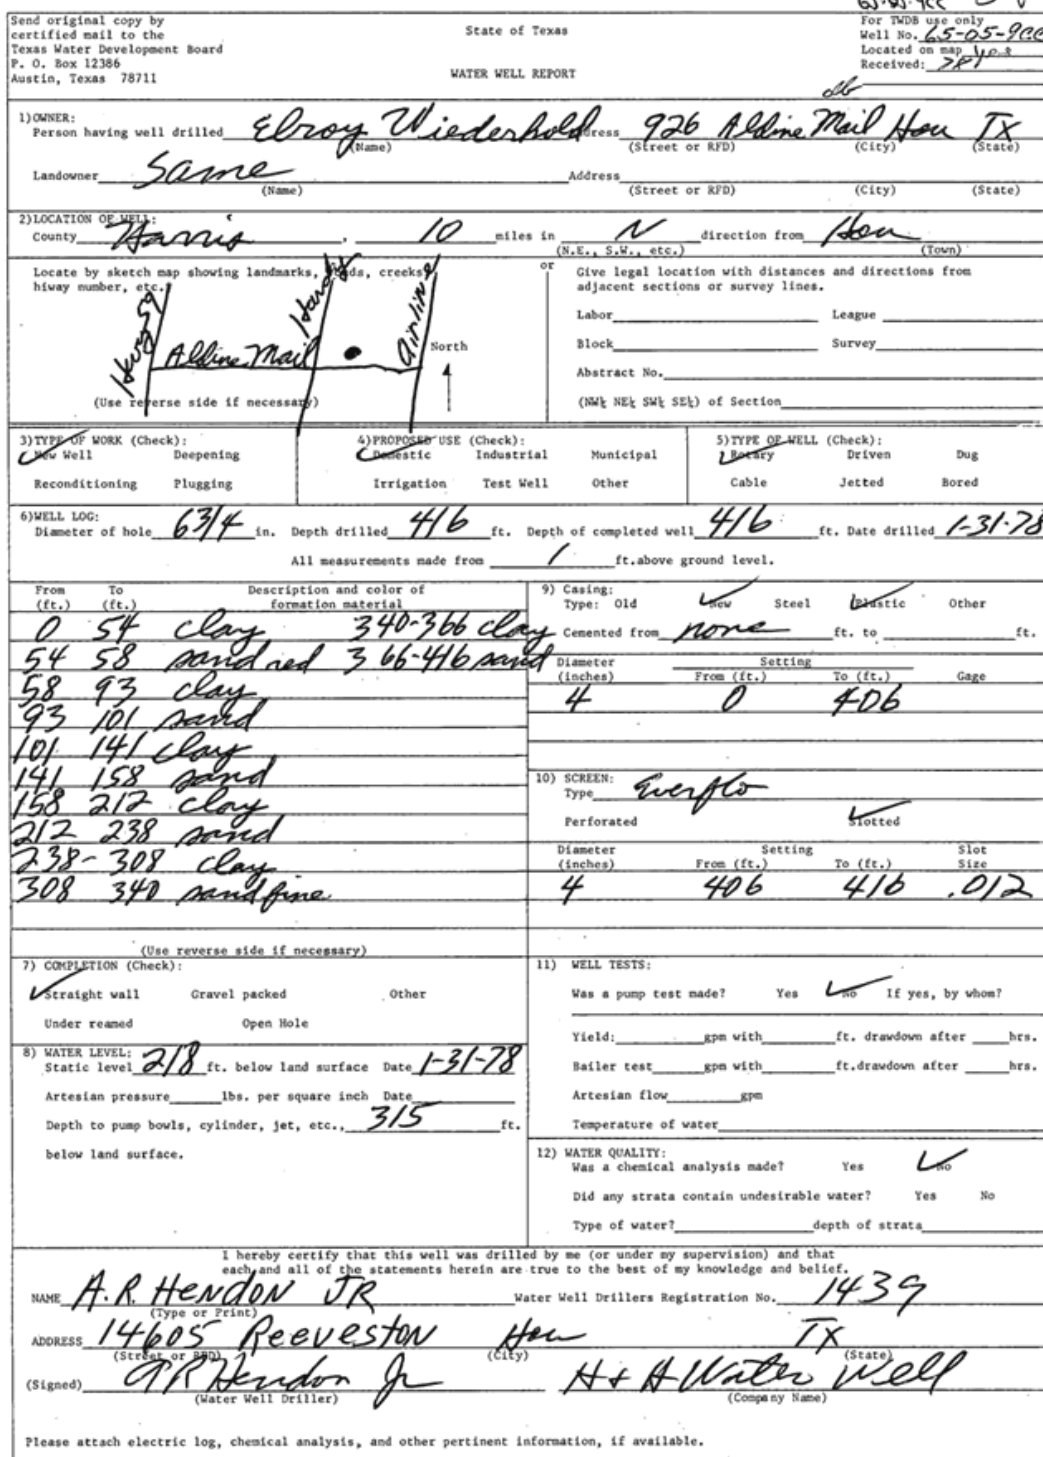 65-05-9CC
Send original copy by
certified mail to the
Texas Water Development Board
P. O. Box 12386
Austin, Texas 78711
State of Texas
WATER WELL REPORT
For TWDB use only
Well No. 65-05-9CC
Located on map yes
Received:
1)OWNER:
Person having well drilled Elroy Wiederhold Address 926 Aldine Mail Hou TX
(Name) (Street or RFD) (City) (State)
Landowner Same Address
(Name) (Street or RFD) (City) (State)
2)LOCATION OF WELL:
County Harris , 10 miles in N direction from Hou
(N.E., S.W., etc.) (Town)
Locate by sketch map showing landmarks, roads, creeks,
hiway number, etc.
Hwy 59
Hardy
Airline
Aldine Mail
North
(Use reverse side if necessary)
or
Give legal location with distances and directions from
adjacent sections or survey lines.
Labor League
Block Survey
Abstract No.
(NW¼ NE¼ SW¼ SE¼) of Section
3)TYPE OF WORK (Check):
New Well Deepening
Reconditioning Plugging
4)PROPOSED USE (Check):
Domestic Industrial Municipal
Irrigation Test Well Other
5)TYPE OF WELL (Check):
Rotary Driven Dug
Cable Jetted Bored
6)WELL LOG:
Diameter of hole 6 3/4 in. Depth drilled 416 ft. Depth of completed well 416 ft. Date drilled 1-31-78
All measurements made from 1 ft.above ground level.
From To Description and color of
(ft.) (ft.) formation material
0 54 clay 340-366 clay
54 58 sand red 366-416 sand
58 93 clay
93 101 sand
101 141 clay
141 158 sand
158 212 clay
212 238 sand
238-308 clay
308 340 sand fine
(Use reverse side if necessary)
9) Casing:
Type: Old New Steel Plastic Other
Cemented from none ft. to ft.
Diameter Setting
(inches) From (ft.) To (ft.) Gage
4 0 406
10) SCREEN:
Type Everflo
Perforated Slotted
Diameter Setting Slot
(inches) From (ft.) To (ft.) Size
4 406 416 .012
7) COMPLETION (Check):
Straight wall Gravel packed Other
Under reamed Open Hole
8) WATER LEVEL:
Static level 218 ft. below land surface Date 1-31-78
Artesian pressure lbs. per square inch Date
Depth to pump bowls, cylinder, jet, etc., 315 ft.
below land surface.
11) WELL TESTS:
Was a pump test made? Yes No If yes, by whom?
Yield: gpm with ft. drawdown after hrs.
Bailer test gpm with ft.drawdown after hrs.
Artesian flow gpm
Temperature of water
12) WATER QUALITY:
Was a chemical analysis made? Yes No
Did any strata contain undesirable water? Yes No
Type of water? depth of strata
I hereby certify that this well was drilled by me (or under my supervision) and that
each and all of the statements herein are true to the best of my knowledge and belief.
NAME A.R. HENDON JR Water Well Drillers Registration No. 1439
(Type or Print)
ADDRESS 14605 REEVESTON Hou TX
(Street or RFD) (City) (State)
(Signed) A R Hendon Jr H & H Water Well
(Water Well Driller) (Company Name)
Please attach electric log, chemical analysis, and other pertinent information, if available.